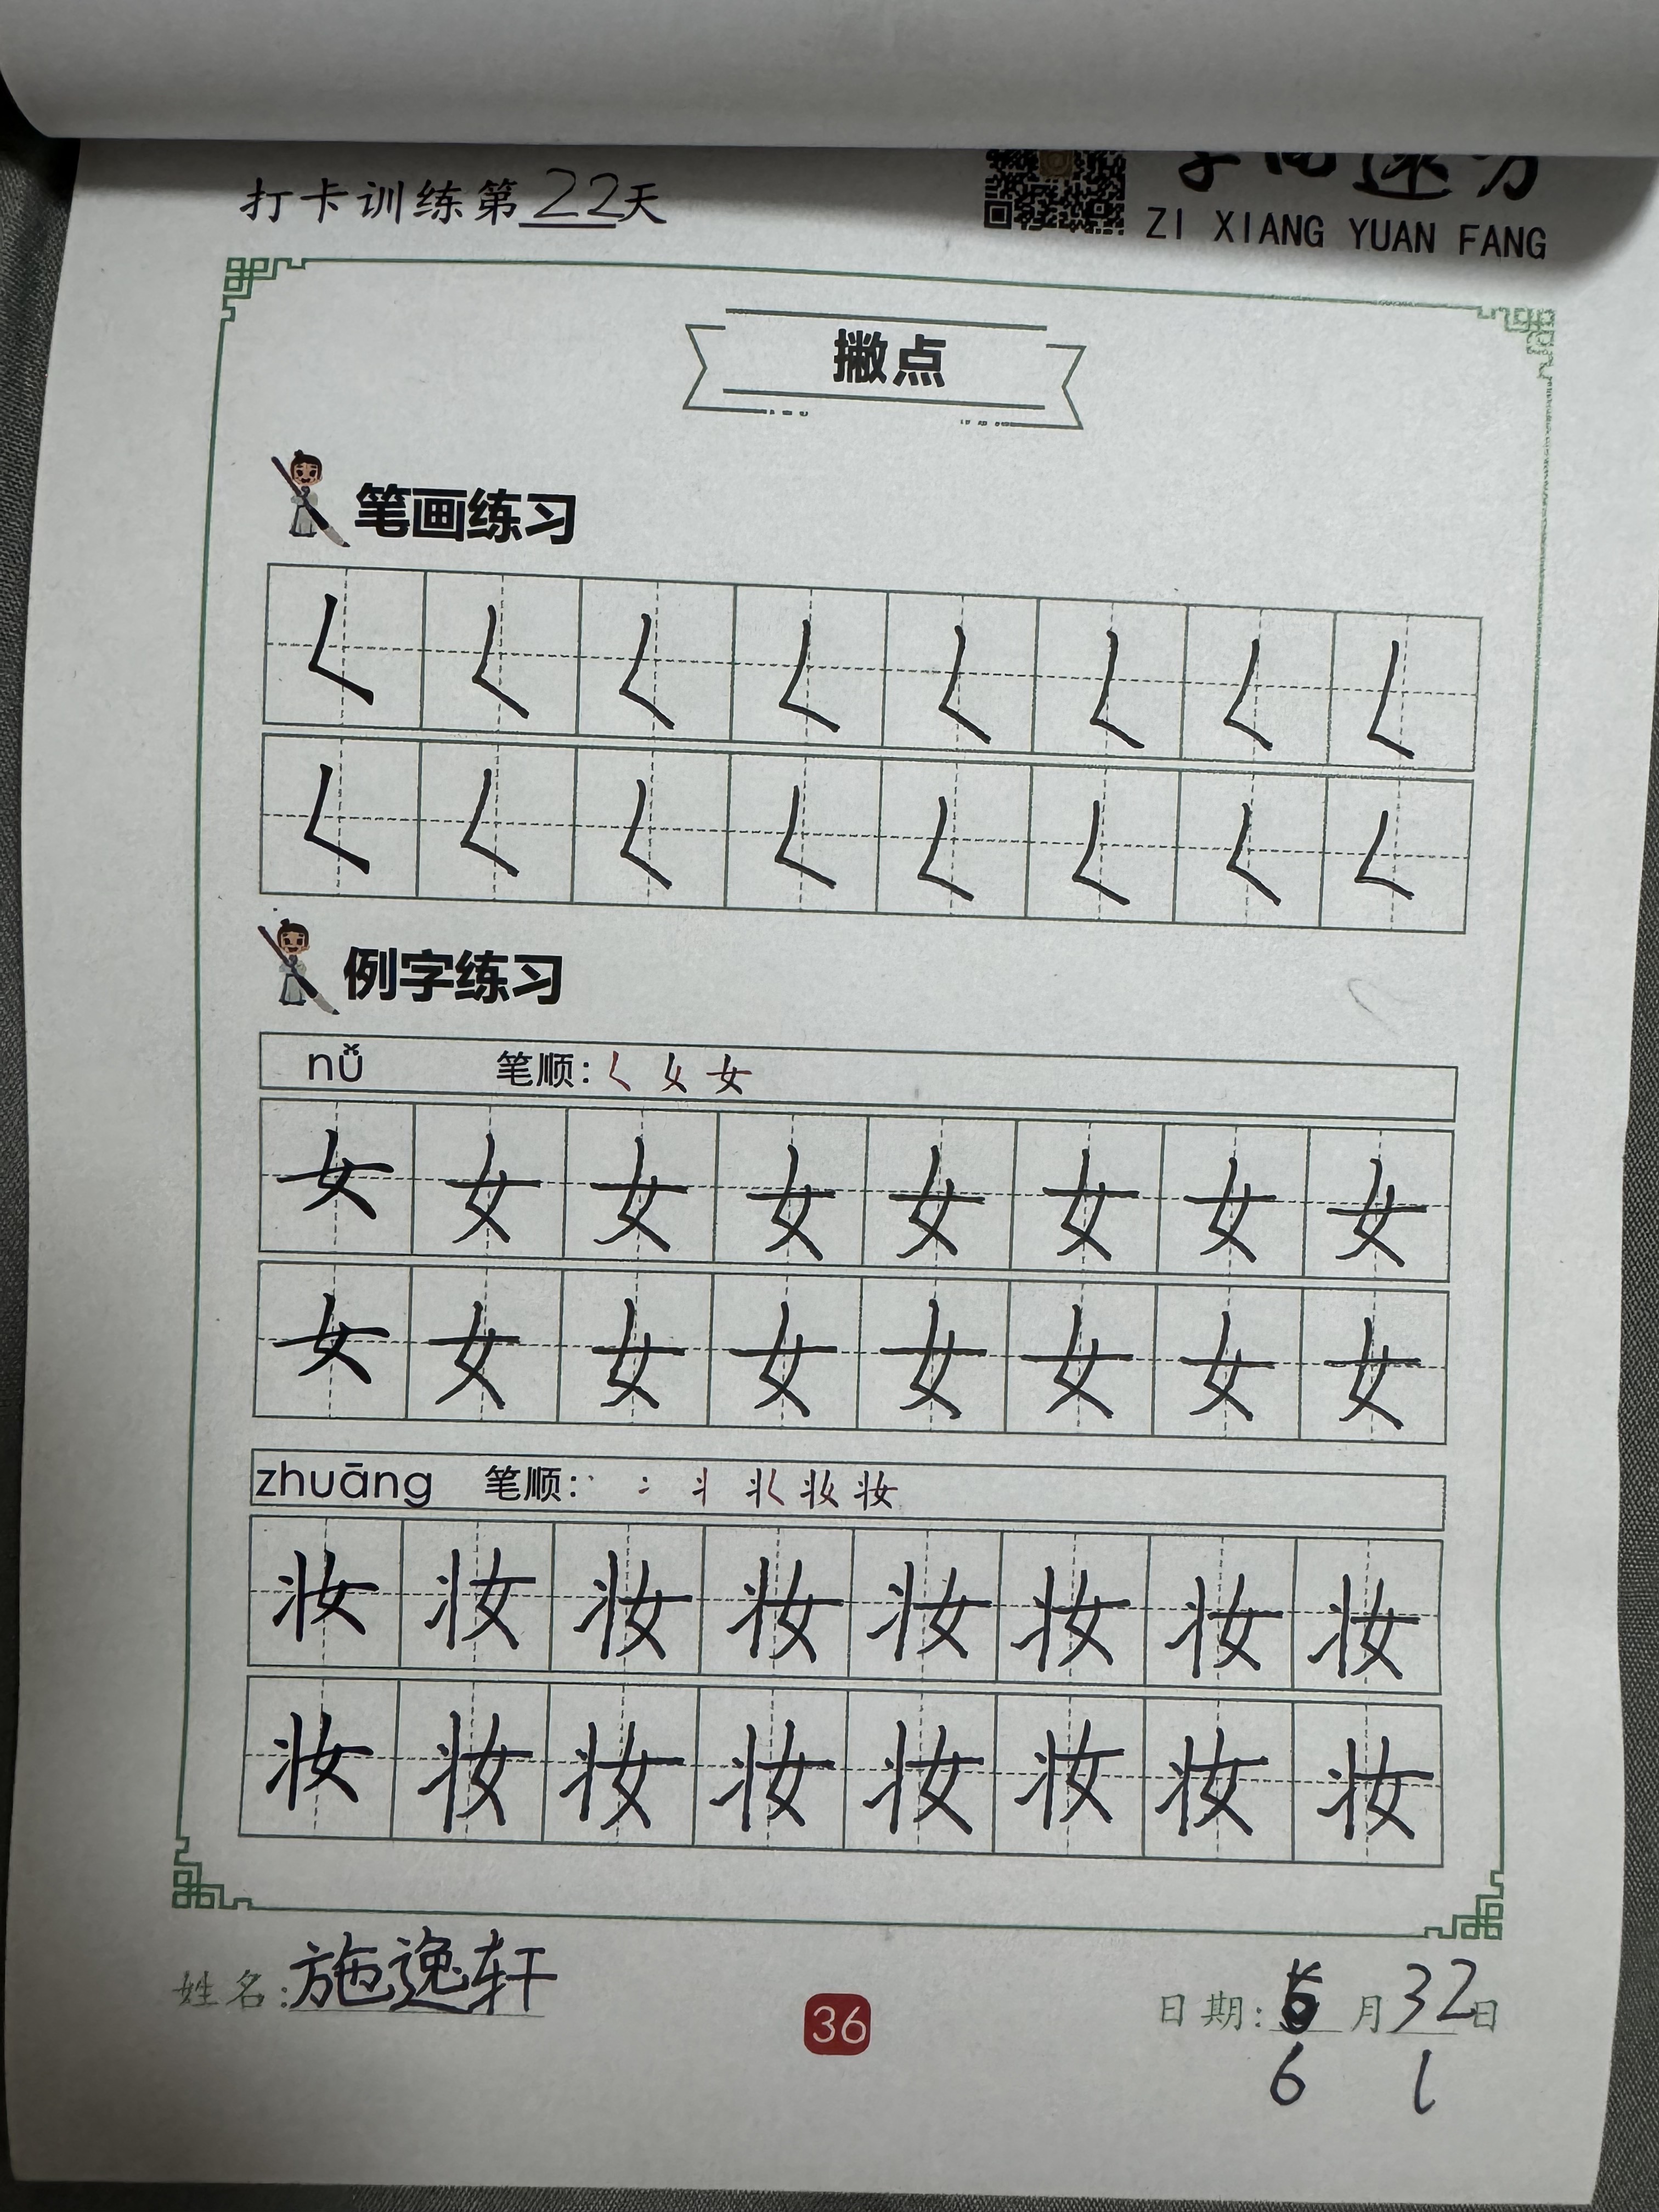 打卡训练第22天
ZI XIANG YUAN FANG
撇点
笔画练习
𡿨 𡿨 𡿨 𡿨 𡿨 𡿨 𡿨 𡿨
𡿨 𡿨 𡿨 𡿨 𡿨 𡿨 𡿨 𡿨
例字练习
nǚ 笔顺: 𡿨 女
女 女 女 女 女 女 女 女
女 女 女 女 女 女 女 女
zhuāng 笔顺: 丬 妆
妆 妆 妆 妆 妆 妆 妆 妆
妆 妆 妆 妆 妆 妆 妆 妆
姓名: 施逸轩
36
日期: 月32日
6 1